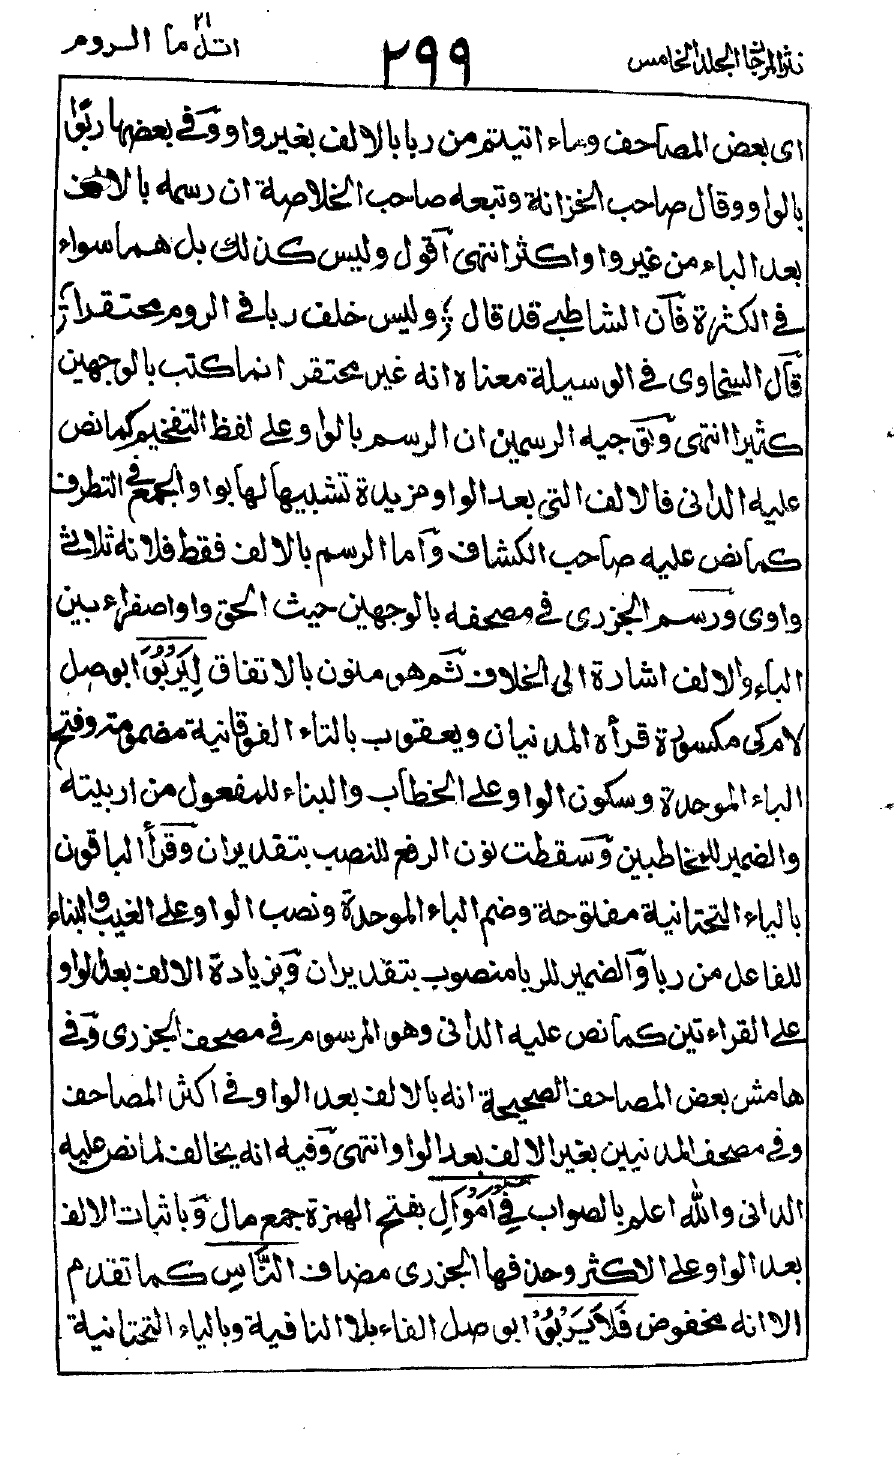 نثر المرجان المجلد الخامس
٢٩٩
اتل ما ٢١ الروم
اى بعض المصاحف وماء اتيتم من ربا بالالف بغير واو وفى بعضها ربوا
بالواو وقال صاحب الخزانة وتبعه صاحب الخلاصة ان رسمه بالالف
بعد الباء من غير واو اكثر انتهى أقول وليس كذلك بل هما سواء
فى الكثرة فان الشاطبى قد قال ؏ وليس خلف ربا فى الروم محتقرا ؏
قال السخاوى فى الوسيلة معناه انه غير محتقر انما كتب بالوجهين
كثيرا انتهى وتوجيه الرسمين ان الرسم بالواو على لفظ التفخيم كما نص
عليه الدانى فالالف التى بعد الواو مزيدة تشبيها لها بواو الجمع فى التطرف
كما نص عليه صاحب الكشاف وأما الرسم بالالف فقط فلانه ثلاثى
واوى ورسم الجزرى فى مصحفه بالوجهين حيث الحق واوا صفراء بين
الباء والالف اشارة الى الخلاف ثم هو منون بالاتفاق لِيَرْبُوَا بوصل
لام كى مكسورة قرأه المدنيان ويعقوب بالتاء الفوقانية مضمومة وفتح
الباء الموحدة وسكون الواو على الخطاب والبناء للمفعول من اربيته
والضمير للمخاطبين وسقطت نون الرفع للنصب بتقدير ان وقرأ الباقون
بالياء التحتانية مفتوحة وضم الباء الموحدة ونصب الواو على الغيب والبناء
للفاعل من ربا والضمير للربا منصوب بتقدير ان وبزيادة الالف بعد الواو
على القراءتين كما نص عليه الدانى وهو المرسوم فى مصحف الجزرى وفى
هامش بعض المصاحف الصحيحة انه بالالف بعد الواو فى اكثر المصاحف
وفى مصحف المدنيين بغير الالف بعد الواو انتهى وفيه انه يخالف لما نص عليه
الدانى والله اعلم بالصواب فِى أَمْوَالِ بفتح الهمزة جمع مال وباثبات الالف
بعد الواو على الاكثر وحذفها الجزرى مضاف النَّاسِ كما تقدم
الا انه مخفوض فَلَا يَرْبُوْا بوصل الفاء بلا النافية وبالياء التحتانية